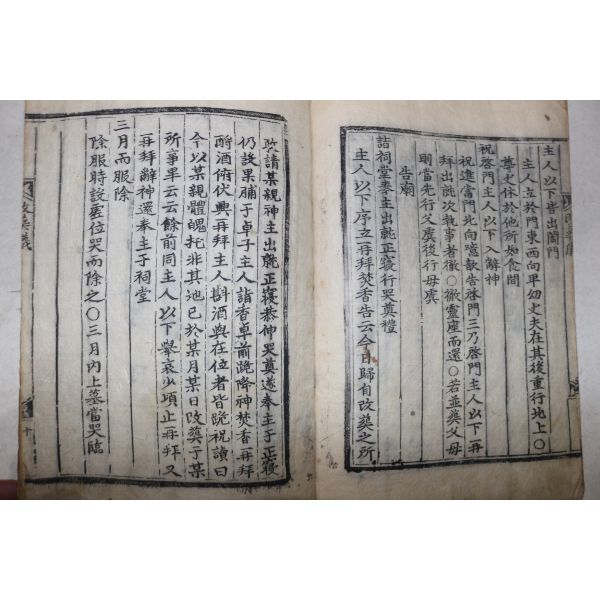 主人以下皆出闔門
主人立於門東西向卑幼丈夫在其後重行地上〇
尊丈休於他所如食間
祝啓門主人以下入辭神
祝進當門北向噫歆告啓門三乃啓門主人以下再
拜出就次執事者徹〇徹靈座而還〇若並葬父母
則當先行父虞後行母虞
告廟
詣祠堂奉主出就正寢行哭奠禮
主人以下序立再拜焚香告云今日歸自改葬之所
敢請某親神主出就正寢恭伸哭奠遂奉主于正寢
仍設果脯于卓子主人詣香卓前跪降神焚香再拜
酹酒俯伏興再拜主人斟酒與在位者皆跪祝讀曰
今以某親體魄托非其地已於某月某日改葬于某
所事畢云云餘前同主人以下擧哀少頃止再拜又
再拜辭神還奉主于祠堂
三月而服除
除服時設虛位哭而除之〇三月內上墓當哭臨
改葬儀
十